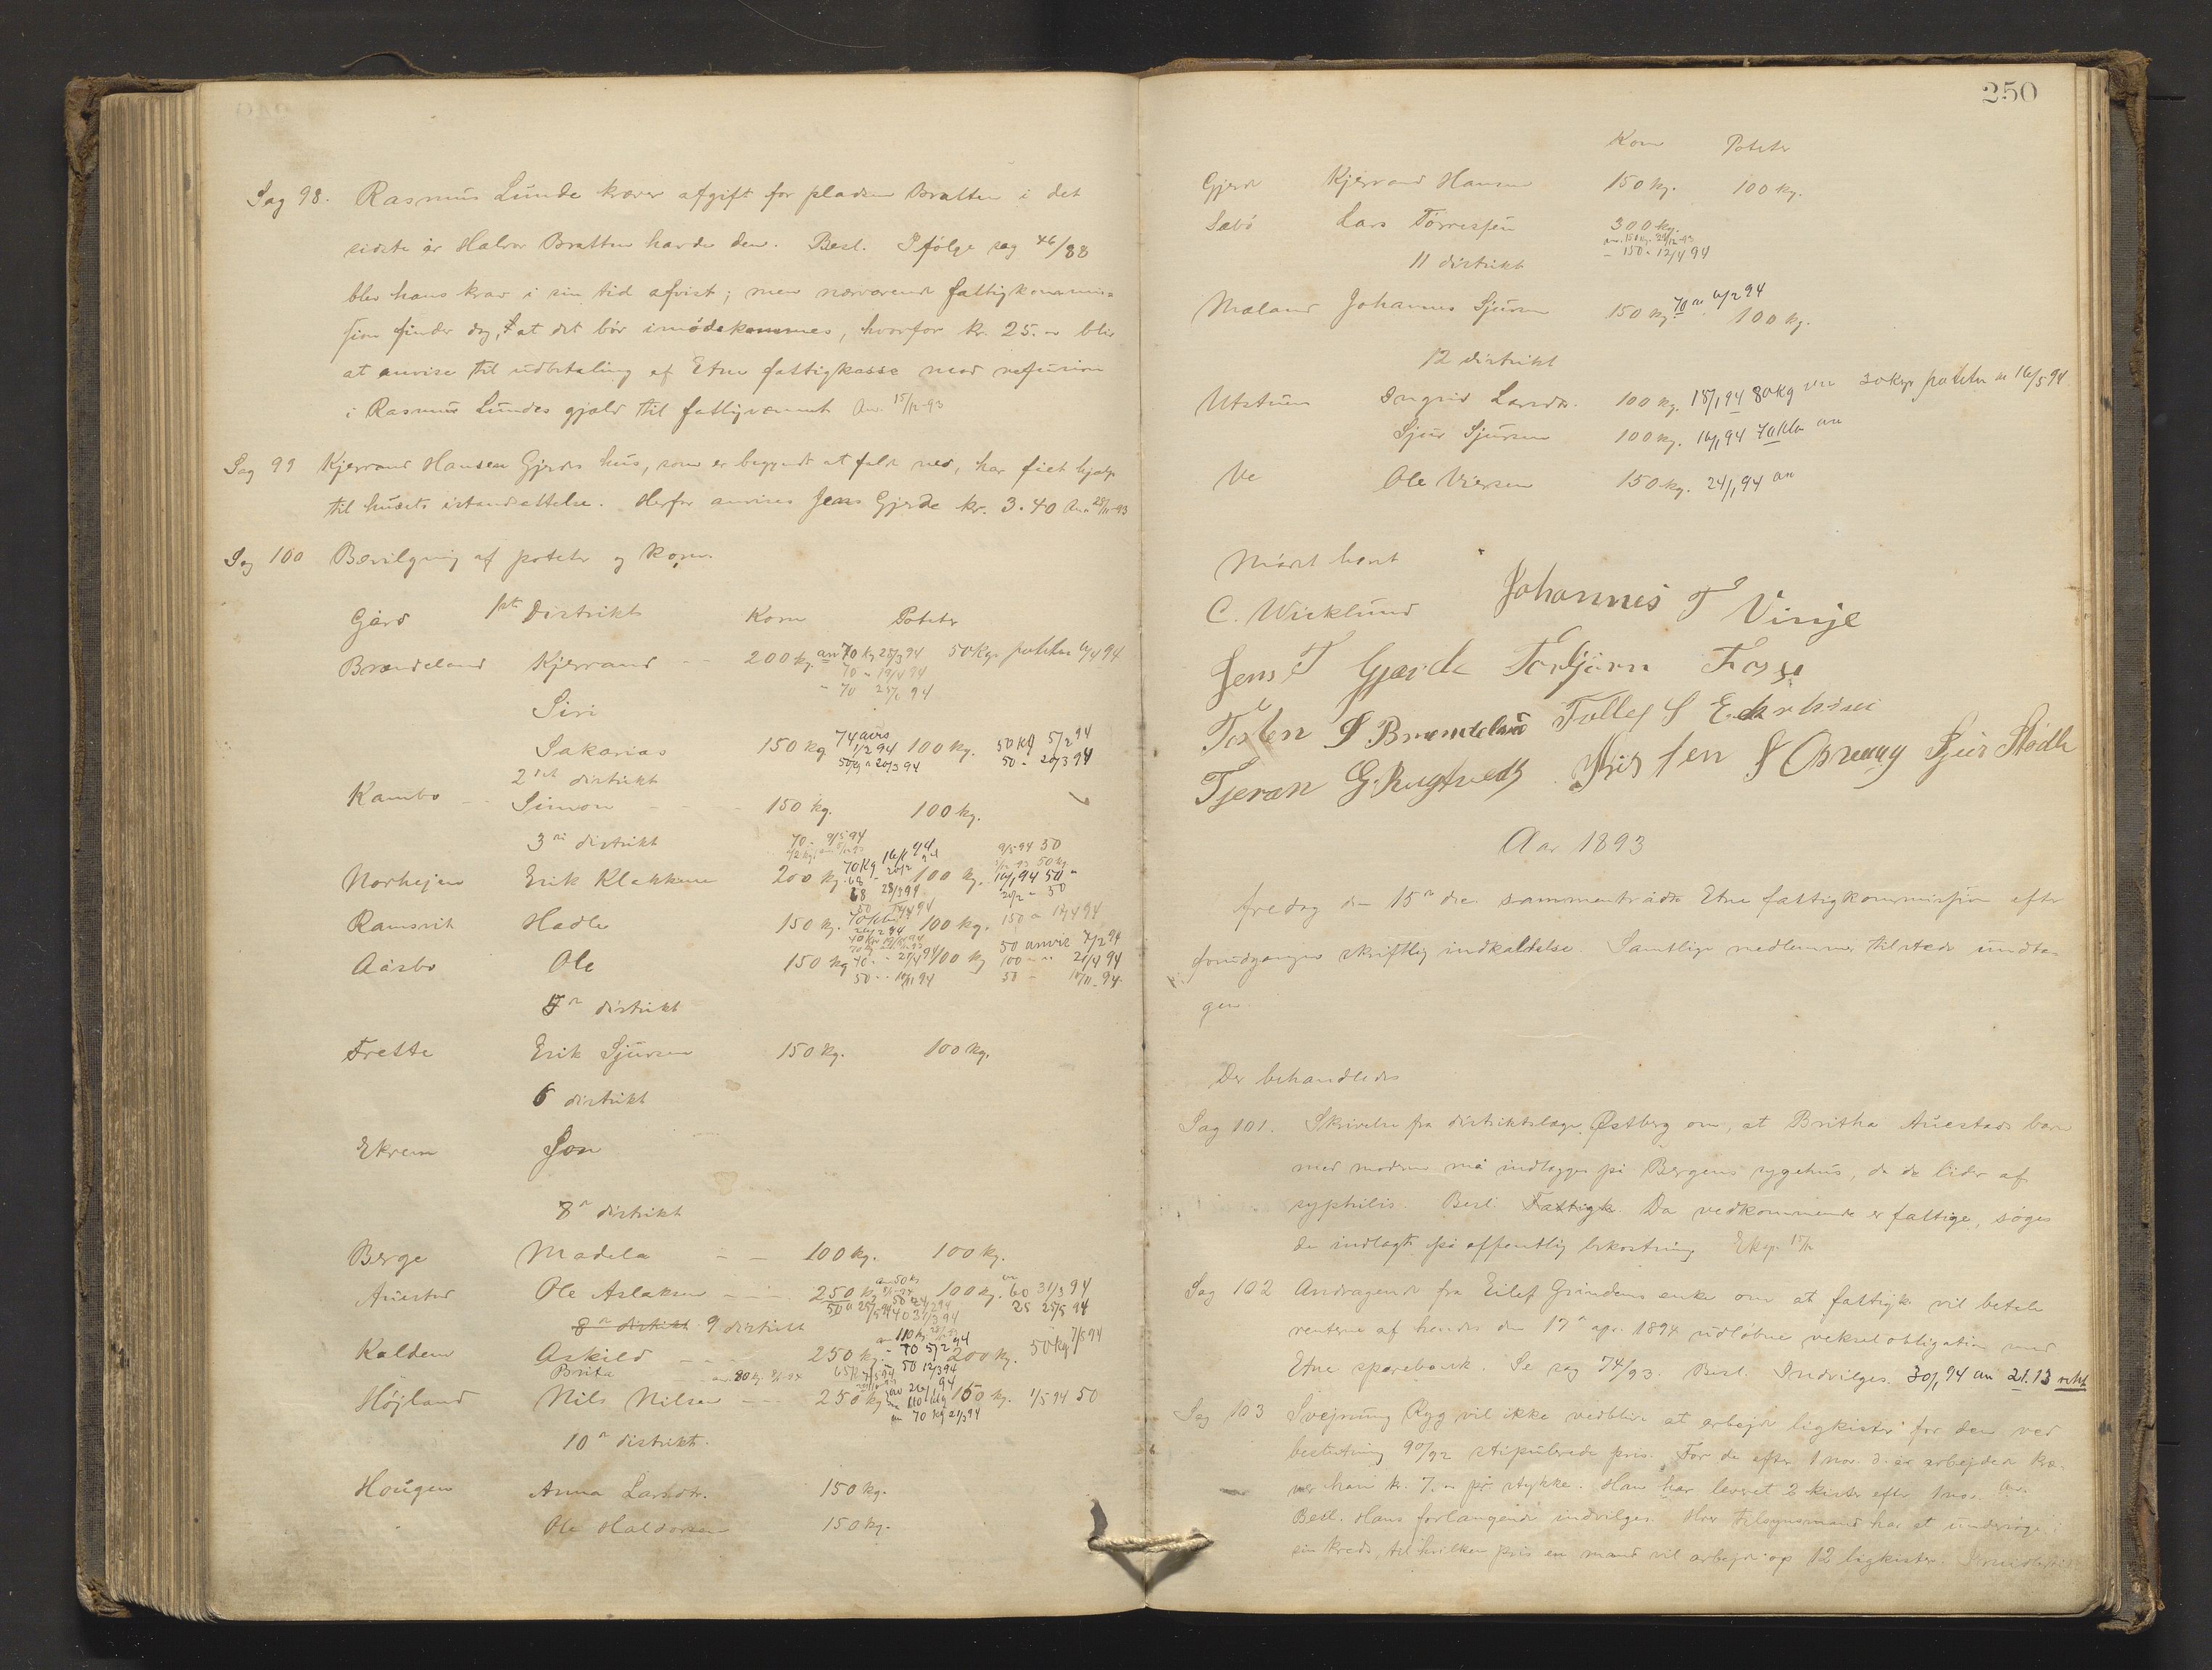 Sag 98. Rasmus Lunde kræver afgift for pladsen Bratten i det
sidste år Halvor Bratten havde den. Besl. Ifølge sag 46/88
blev hans krav i sin tid afvist; men nærværende fattigkommis=
sion finder dog, at det bör imödekommes, hvorfor kr. 25.- blir
at anvise til udbetaling af Etne fattigkasse mod refusion
i Rasmus Lundes gjæld til fattigvæsenet Anv. 15/12-93
Sag 99 Kjerrand Hansen Gjerdes hus, som er begyndt at falde ned, har fået hjælp
til husets istandsættelse. Herfor anvises Jens Gjerde kr. 3.40 Anv. 28/11-93
Sag 100 Bevilgning af poteter og korn.
Gård 1ste Distrikt Korn Poteter
Brændeland Kjerrand 200 kg. anv 70 kg 28/3 94 50 kgr poteter 4/4 94
70 - 19/4 94
- 70 25/6 94
Siri
Sakarias 150 kg 74 anvs 1/2 94 100 kg. 50 kg 5/2 94
50 kg " 20/3 94 50 - 20/3 94
2det distrikt
Kambo Simon 150 kg. 100 kg.
3die distrikt
70 - 9/5 94 9/5 94 50
Norhejm Erik Klakken 200 kg. 70 Kg 16/1 94 100 kg. 16/1 94 50 "
68 28/3 94 20/2 " 50
Ramsvik Hadle 150 kg. 100 kg. 150 " 17/4 94
Aårbo Ole 150 kg 100 kg 50 anvis 7/2 94
70 - - 21/4 94 100 - " 21/4 94
50 - - 10/11 94 50 - 10/11 - 94.
5te distrikt
Frette Erik Sjursen 150 kg. 100 kg.
6 distrikt
Ekrem Jon
8de distrikt
Berge Madela 100 kg. 100 kg.
Auestad Ole Aslaksen 250 kg 100 kg. 60 31/3 94
50 a 25/5 94 40 31/3 94 25 25/5 94
8de distrikt 9 distrikt
Kalden Askild 250 kg. 70 5/2 94 200 kg. 50 kg 7/5 94
Brita 50 12/3 94
Höjland Nils Nilsen 250 kg 150 kg. 1/5 94 50
an 70 kg 21/3 94
10de distrikt.
Hougen Anna Larsdtr. 150 kg.
Ole Haldorsen 150 kg.
250
Korn Poteter
Gjerde Kjerrand Hansen 150 kg. 100 kg.
Sæbö Lars Törressen 300 kg.
anv. 150 kg. 29/12-93
- 150 - 12/4 94
11 distrikt
Mæland Johannes Sjursen 150 kg 70 an 6/2 94 100 kg.
12 distrikt
Utstuen Ingrid Larsdtr. 100 kg. 18/1 94 80 kg anv 30 kgr poteter an 16/5 94
Sjur Sjursen 100 kg. 16/1 94 70 kilo an
Ve Ole Viersen 150 kg. 24/1 94 an
Mödet hævet
C. Wicklund Johannes T Vinje
Jens T Gjærde Torbjörn Fosse
Tosten S Brændeland Tollef S Eckrheim
Tjeran G. Rugtvedt Kristen S Osnaaug Sjur Stødle
Aar 1893
fredag den 15de dec. sammentrådte Etne fattigkommission efter
forudgången skriftlig indkaldelse. Samtlige medlemmer tilstede undta
gen
Der behandledes
Sag 101. Skrivelse fra distriktslæge Østberg om, at Britha Auestads barn
med moderen må indlægges på Bergens sygehus, da de lider af
syphilis. Besl. Fattigk. Da vedkommende er fattige, söges
de indlagt på offentlig bekostning Eksp. 15/12
Sag 102 Andragende fra Eilef Grindens enke om at fattigk. vil betale
renterne af hendes den 17de apr. 1894 udløbne vekselobligation med
Etne sparebank. Se sag 74/93. Besl. Indvilges. 30/1 94 an 21.13
Sag 103 Svejnung Ryg vil ikke vedblive at arbejde ligkister for den ved
beslutning 90/92 stipulerede pris. For de efter 1 nov. d. år arbejdede kræ-
ver han kr. 7.- pr stykke. Han har leveret 2 kister efter 1 nov. Anv.
Besl. Hans forlangende indvilges. Hver tilsynsmand har at undersøge i
sin kreds, til hvilken pris en mand vil arbejde op 12 ligkister.